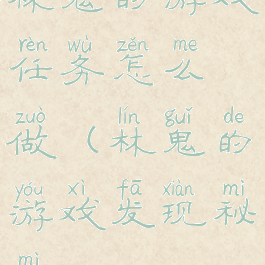 林鬼的游戏
rèn wù zěn me
任务怎么
zuò lín guǐ de
做（林鬼的
yóu xì fā xiàn mì
游戏发现秘
mì